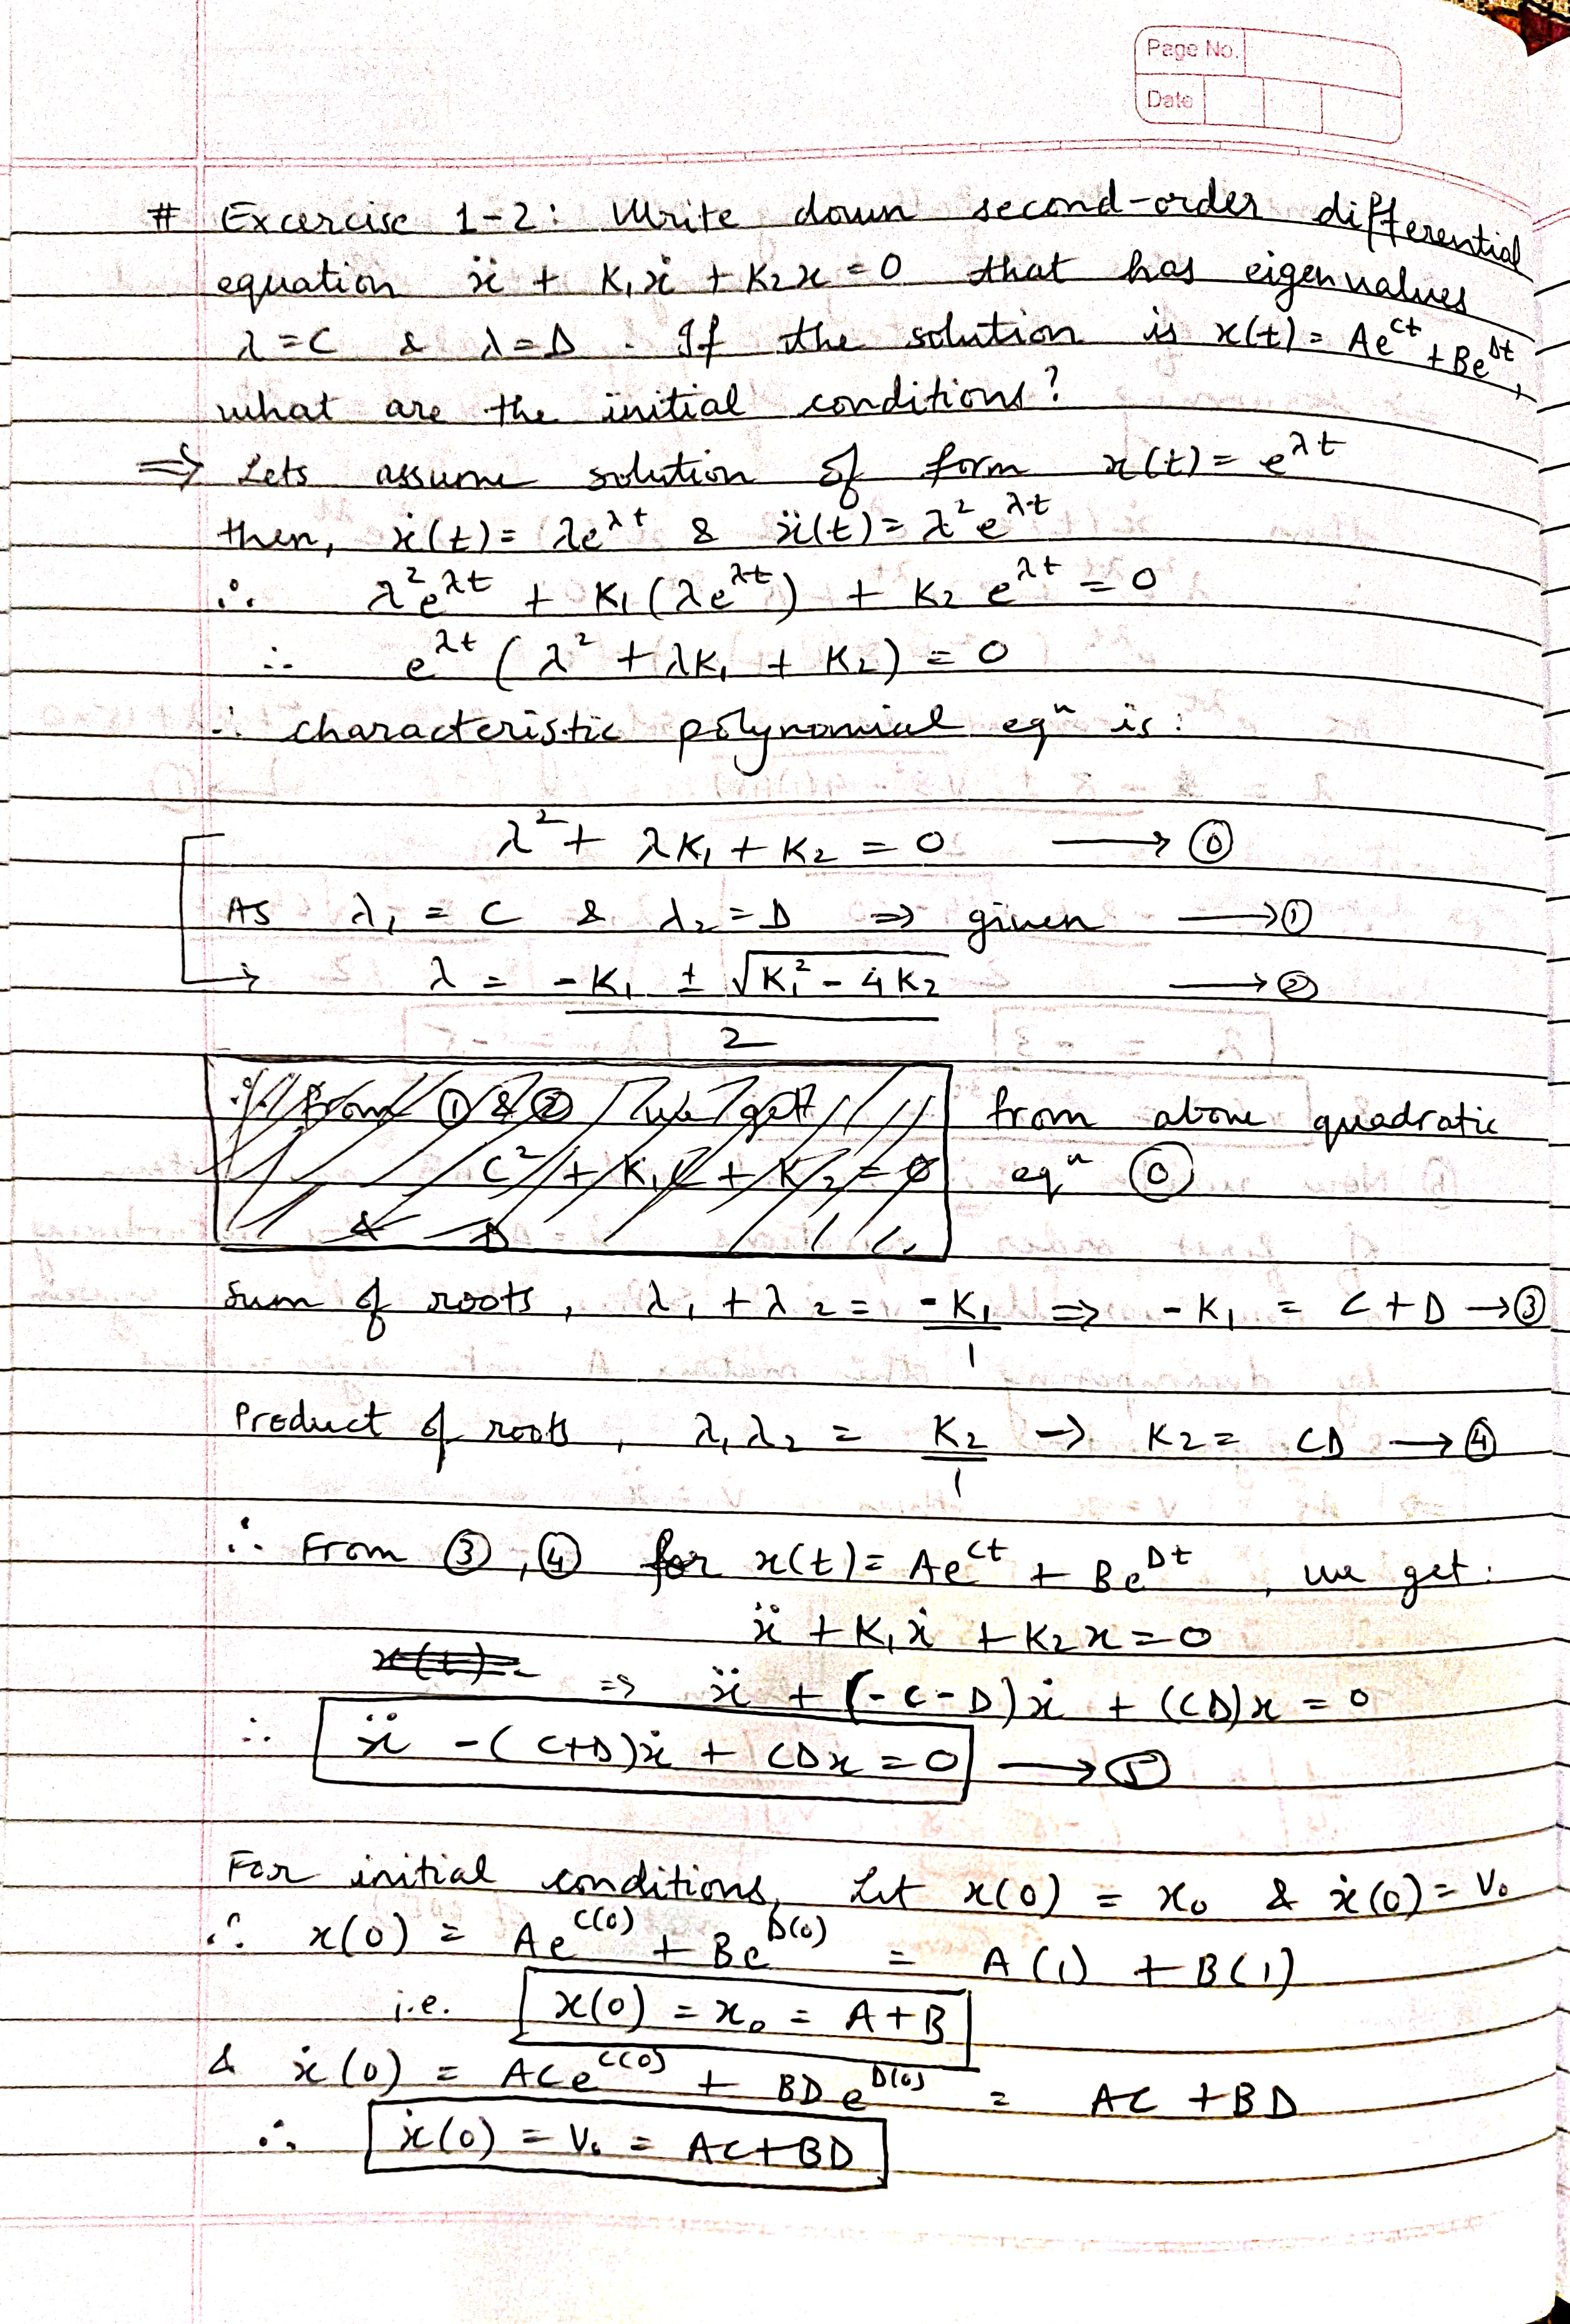 Page No.
Date
# Excercise 1-2: Write down second-order differential
equation ẍ + K₁ẋ + K₂x = 0 that has eigenvalues
λ = C & λ = D. If the solution is x(t) = Ae^{Ct} + Be^{Dt},
what are the initial conditions?
⇒ Lets assume solution of form x(t) = e^{λt}
then, ẋ(t) = λe^{λt} & ẍ(t) = λ²e^{λt}
∴ λ²e^{λt} + K₁(λe^{λt}) + K₂ e^{λt} = 0
∴ e^{λt} (λ² + λK₁ + K₂) = 0
∴ characteristic polynomial eqⁿ is:
λ² + λK₁ + K₂ = 0 → ⓪
As λ₁ = C & λ₂ = D ⇒ given → ①
→ λ = (-K₁ ± √(K₁² - 4K₂)) / 2 → ②
∴ from ① & ② we get
C² + K₁C + K₂ = 0
& D
from above quadratic
eqⁿ ⓪
Sum of roots, λ₁ + λ₂ = -K₁/1 ⇒ -K₁ = C + D → ③
Product of roots, λ₁λ₂ = K₂/1 → K₂ = CD → ④
∴ From ③, ④ for x(t) = Ae^{Ct} + Be^{Dt}, we get:
ẍ + K₁ẋ + K₂x = 0
x(t) =
⇒ ẍ + (-C-D)ẋ + (CD)x = 0
∴ ẍ - (C+D)ẋ + CDx = 0 → ⑤
For initial conditions, Let x(0) = x₀ & ẋ(0) = V₀
∴ x(0) = Ae^{C(0)} + Be^{D(0)} = A(1) + B(1)
i.e. x(0) = x₀ = A + B
& ẋ(0) = ACe^{C(0)} + BDe^{D(0)} = AC + BD
∴ ẋ(0) = V₀ = AC + BD